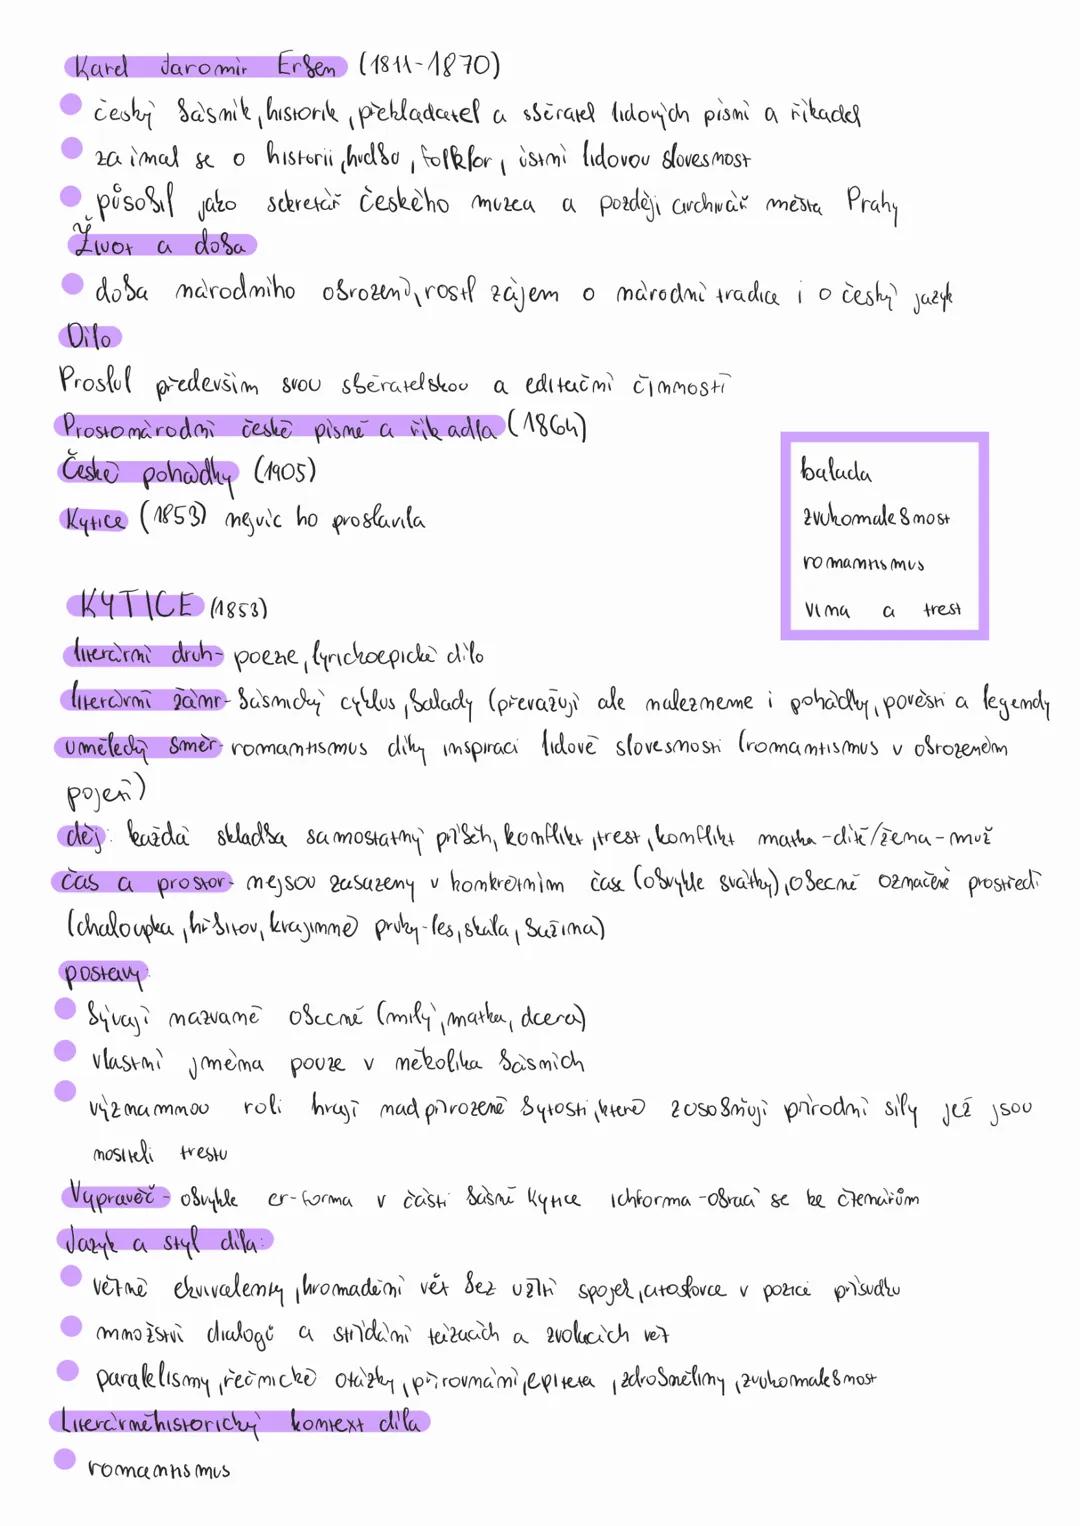 Karel Jaromír Erben (1811-1870)
český básník, historik, překladatel a sběratel lidových písní a říkadel
zajímal se o historii, hudbu, folklor, ústní lidovou slovesnost
působil jako sekretář českého muzea a později archivář města Prahy
Život a doba
doba národního obrození, rostl zájem o národní tradice i o český jazyk
Dílo
Proslul především svou sběratelskou a editační činností
Prostonárodní české písně a říkadla (1864)
České pohádky (1905)
Kytice (1853) nejvíc ho proslavila
balada
zvukomalebnost
romantismus
vina a trest
KYTICE (1853)
literární druh- poezie, lyrickoepické dílo
literární žánr- básnický cyklus, balady (převažují ale nalezneme i pohádky, pověsti a legendy
umělecký směr- romantismus díky inspiraci lidové slovesnosti (romantismus v obrozeném
pojetí)
děj: každá skladba samostatný příběh, konflikt, trest, konflikt matka-dítě/žena-muž
čas a prostor- nejsou zasazeny v konkrétním čase (obvykle svátky), obecně označené prostředí
(chaloupka, hřbitov, krajinné prvky-les, skála, bažina)
postavy:
bývají nazvané obecně (milý, matka, dcera)
vlastní jména pouze v několika básních
významnou roli hrají nadpřirozené bytosti, které zosobňují přírodní síly jež jsou
nositeli trestu
Vypravěč- obvykle er-forma v části básně Kytice ichforma-obrací se ke čtenářům
Jazyk a styl díla:
větné ekvivalenty, hromadění vět bez užití spojek, citoslovce v pozici přísudku
množství dialogů a střídání tázacích a zvolacích vět
paralelismy, řečnické otázky, přirovnání, epiteta, zdrobněliny, zvukomalebnost
Literárněhistorický kontext díla
romantismus